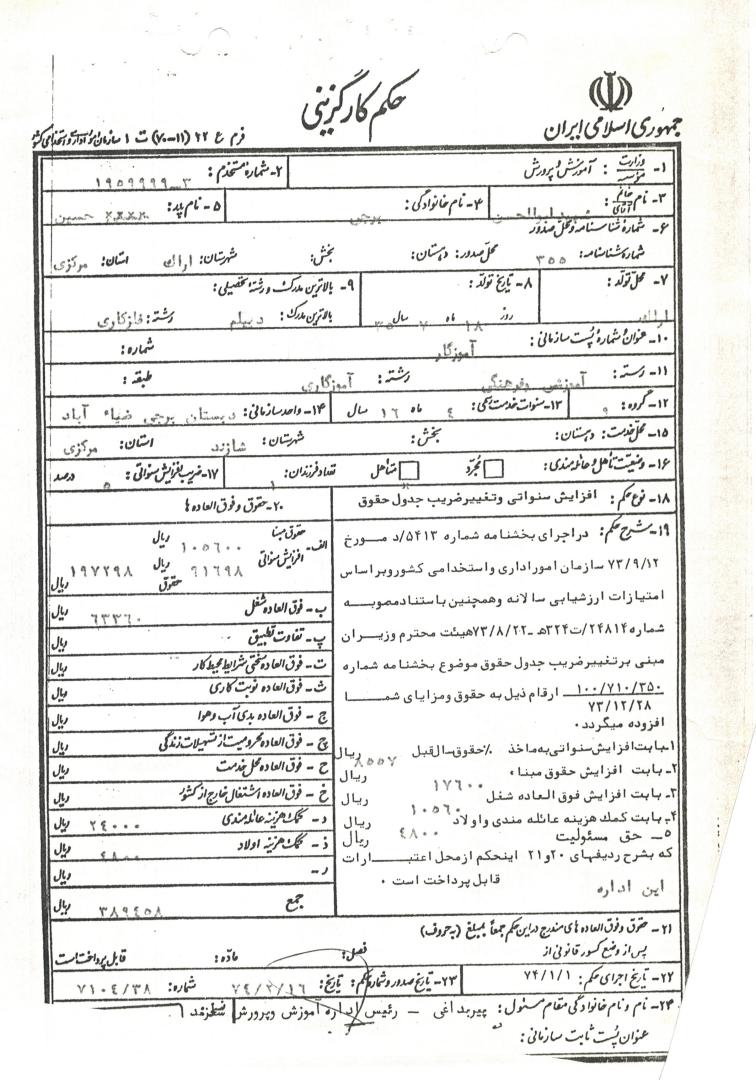 جمهوری اسلامی ایران
حکم کارگزینی
فرم ع ۲۲ (۱۱-۷۰) ت ۱ سازمان امور اداری و استخدامی کشور
۱- وزارت مؤسسه : آموزش و پرورش
۲- شماره مستخدم : ۱۹۵۹۹۹۹-۳
۳- نام خانم آقای :
۴- نام خانوادگی : برجی
۵- نام پدر : حسین
۶- شماره شناسنامه و محل صدور
شماره شناسنامه : ۳۵۵ محل صدور : دهستان : بخش : شهرستان : اراک استان : مرکزی
۷- محل تولد : اراک
۸- تاریخ تولد : روز ۱۸ ماه ۷ سال ۳۵
۹- بالاترین مدرک و رشته تحصیلی :
بالاترین مدرک : دیپلم رشته : فلزکاری
۱۰- عنوان و شماره پست سازمانی : آموزگار شماره :
۱۱- رسته : آموزشی وفرهنگی رشته : آموزگاری طبقه :
۱۲- گروه : ۹
۱۳- سنوات خدمت : ۴ ماه ۱۶ سال
۱۴- واحد سازمانی : دبستان برجی ضیاء آباد
۱۵- محل خدمت : دهستان : بخش : شهرستان : شازند استان : مرکزی
۱۶- وضعیت تأهل و عائله مندی : مجرد متأهل تعداد فرزندان : ۱
۱۷- ضریب افزایش سنواتی : ۵ درصد
۱۸- نوع حکم : افزایش سنواتی وتغییر ضریب جدول حقوق
۱۹- شرح حکم : دراجرای بخشنامه شماره ۵۴۱۳/د مورخ
۷۳/۹/۱۲ سازمان اموراداری و استخدامی کشوروبراساس
امتیازات ارزشیابی سالانه وهمچنین باستنادمصوبه
شماره ۲۴۸۱۴/ت۳۲۴هـ -۷۳/۸/۲۲هیئت محترم وزیران
مبنی برتغییرضریب جدول حقوق موضوع بخشنامه شماره
۱۰۰/۷۱۰/۳۵۰
۷۳/۱۲/۲۸ ارقام ذیل به حقوق ومزایای شما
افزوده میگردد .
۱- بابت افزایش سنواتی به ماخذ ٪حقوق سال قبل ۸۵۵۷ ریال
۲- بابت افزایش حقوق مبناء ۱۷۶۰۰ ریال
۳- بابت افزایش فوق العاده شغل ۱۰۵۶۰ ریال
۴- بابت کمک هزینه عائله مندی واولاد ریال
۵- حق مسئولیت ۴۸۰۰ ریال
که بشرح ردیفهای ۲۰و۲۱ اینحکم ازمحل اعتبارات
این اداره قابل پرداخت است .
۲۰- حقوق و فوق العاده ها
الف- حقوق مبنا ۱۰۵۶۰۰ ریال
افزایش سنواتی ۹۱۶۹۸ ریال
حقوق ۱۹۷۲۹۸ ریال
ب- فوق العاده شغل ۶۳۳۶۰ ریال
پ- تفاوت تطبیق ریال
ت- فوق العاده سختی شرایط محیط کار ریال
ث- فوق العاده نوبت کاری ریال
ج- فوق العاده بدی آب و هوا ریال
چ- فوق العاده محرومیت از تسهیلات زندگی ریال
ح- فوق العاده محل خدمت ریال
خ- فوق العاده اشتغال خارج از کشور ریال
د- کمک هزینه عائله مندی ۲۴۰۰۰ ریال
ذ- کمک هزینه اولاد ۴۸۰۰ ریال
ر- ریال
جمع ۳۸۹۴۵۸ ریال
۲۱- حقوق و فوق العاده های مندرج در این حکم جمعاً بمبلغ (به حروف)
پس از وضع کسور قانونی از فصل : ماده : قابل پرداخت است
۲۲- تاریخ اجرای حکم : ۷۴/۱/۱
۲۳- تاریخ صدور و شماره حکم : تاریخ : ۷۴/۲/۱۶ شماره : ۷۱۰۴/۳۸
۲۴- نام و نام خانوادگی مقام مسئول : پیربداغی - رئیس اداره آموزش وپرورش
عنوان پست ثابت سازمانی :